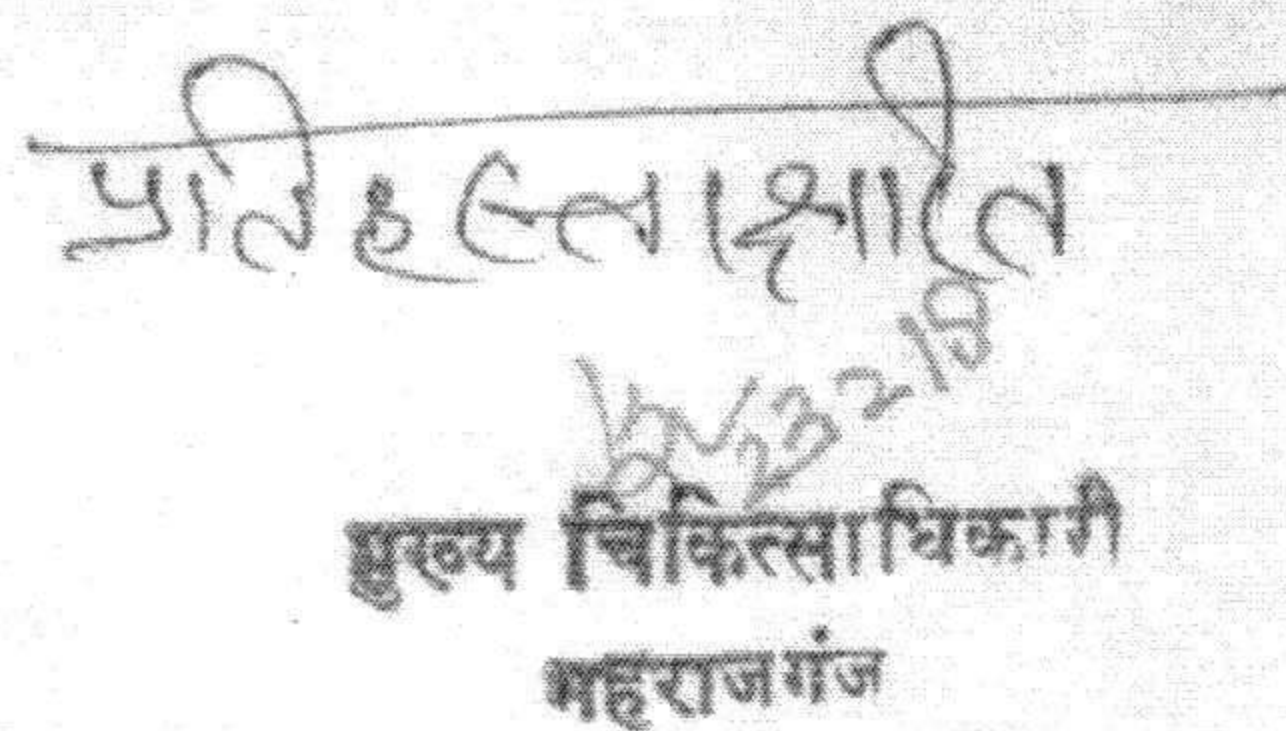 प्रतिहस्ताक्षरित
मुख्य चिकित्साधिकारी
महराजगंज